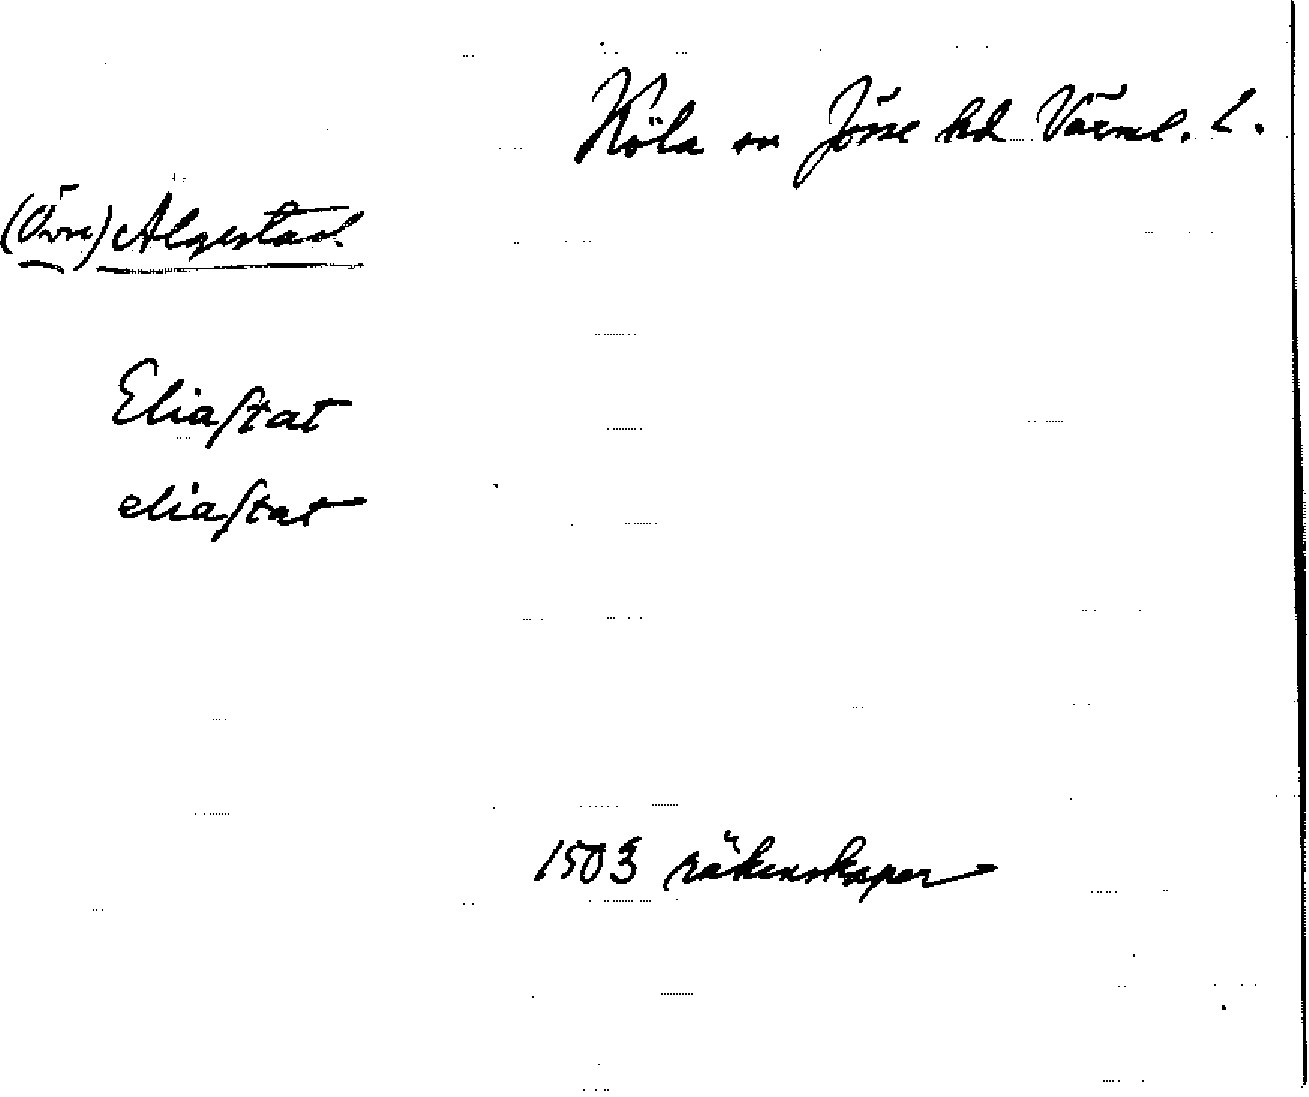 Köla sn Jösse hd Värml. l.
(Övre) Algestad
Eliaſtat
eliaſtat
1503 räkenskaper